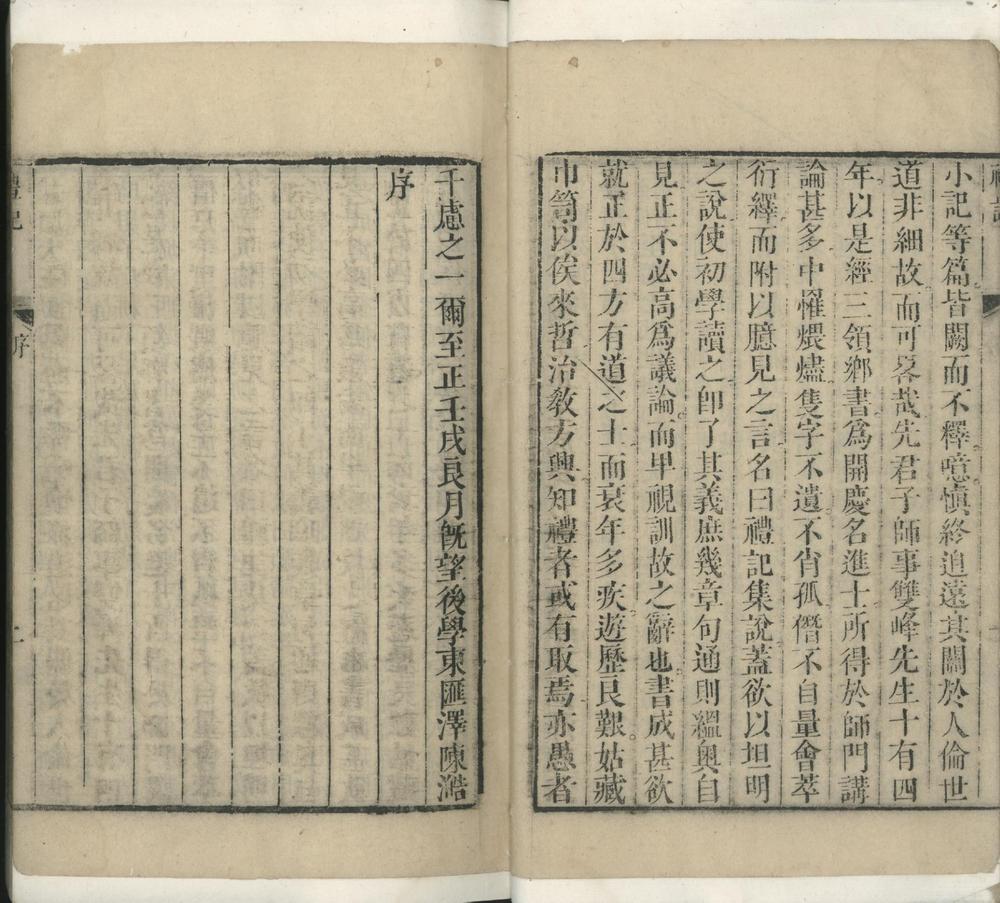 小記等篇皆闕而不釋噫愼終追遠其關於人倫世
道非細故而可畧哉先君子師事雙峰先生十有四
年以是經三領鄉書爲開慶名進士所得於師門講
論甚多中罹煨燼隻字不遺不肖孤僭不自量會萃
衍繹而附以臆見之言名曰禮記集說蓋欲以坦明
之說使初學讀之卽了其義庶幾章句通則縕奧自
見正不必高爲議論而卑視訓故之辭也書成甚欲
就正於四方有道之士而衰年多疾遊歷良艱姑藏
巾笥以俟來哲治敎方興知禮者或有取焉亦愚者
千慮之一爾至正壬戌良月旣望後學東匯澤陳澔
序
禮記
序